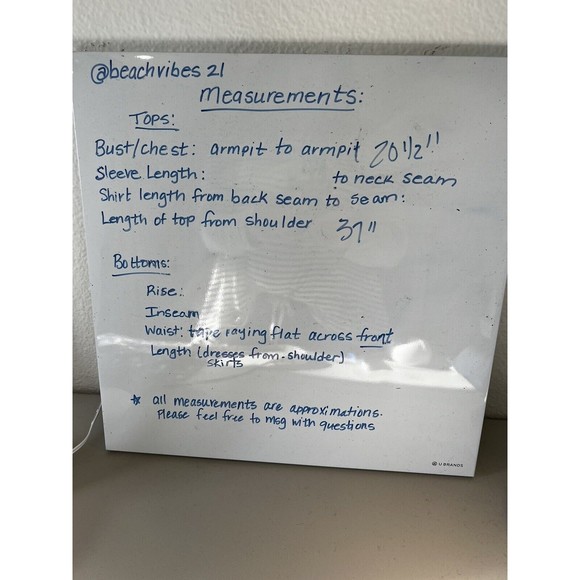 @beachvibes 21
Measurements:
TOPS:
Bust/chest: armpit to armpit 20 1/2"
Sleeve Length: to neck seam
Shirt length from back seam to seam:
Length of top from shoulder 37"
Bottoms:
Rise:
Inseam
Waist: tape laying flat across front
Length (dresses from-shoulder)
skirts
* all measurements are approximations.
Please feel free to msg with questions
U BRANDS